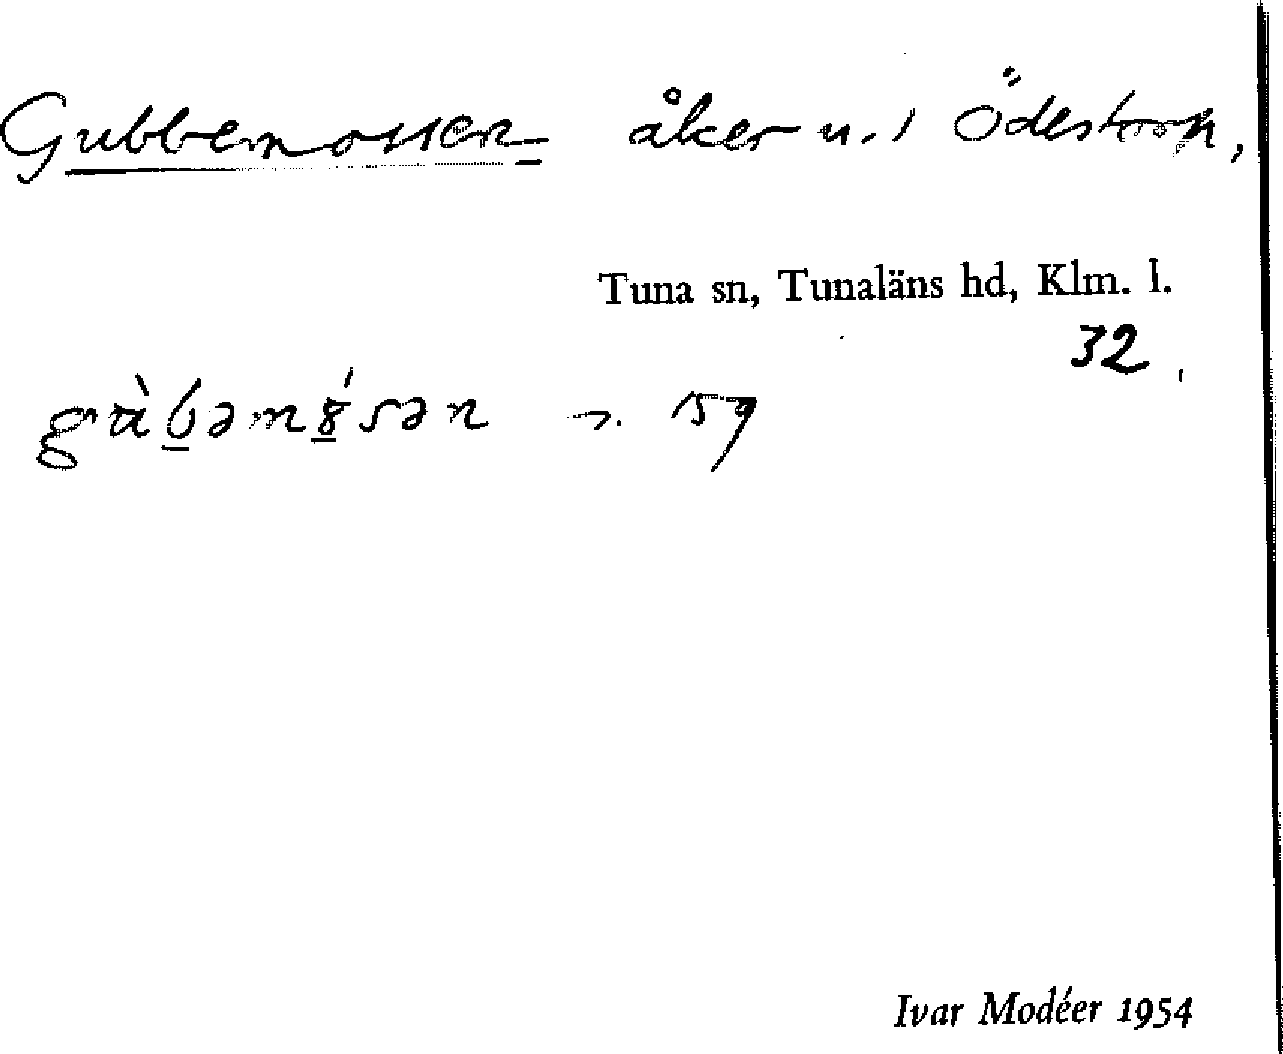 Gubbemossen åker u. Ödestorp,
Tuna sn, Tunaläns hd, Klm. l.
32
gù̀b̲əmo̲̍sən n. 159
Ivar Modéer 1954